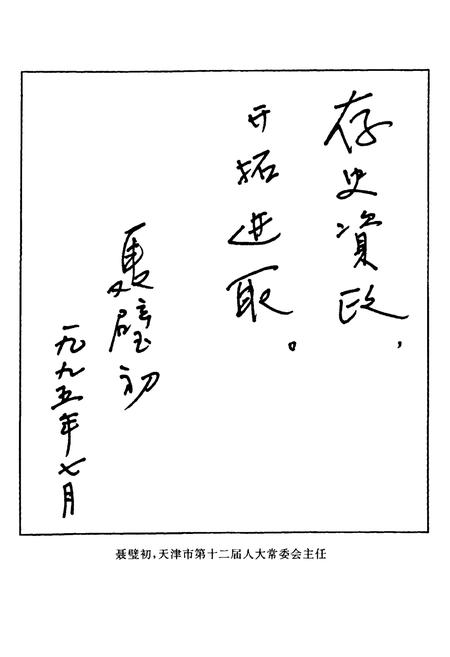 存史資政，
开拓进取。
聂璧初
一九九五年七月
聂璧初,天津市第十二届人大常委会主任